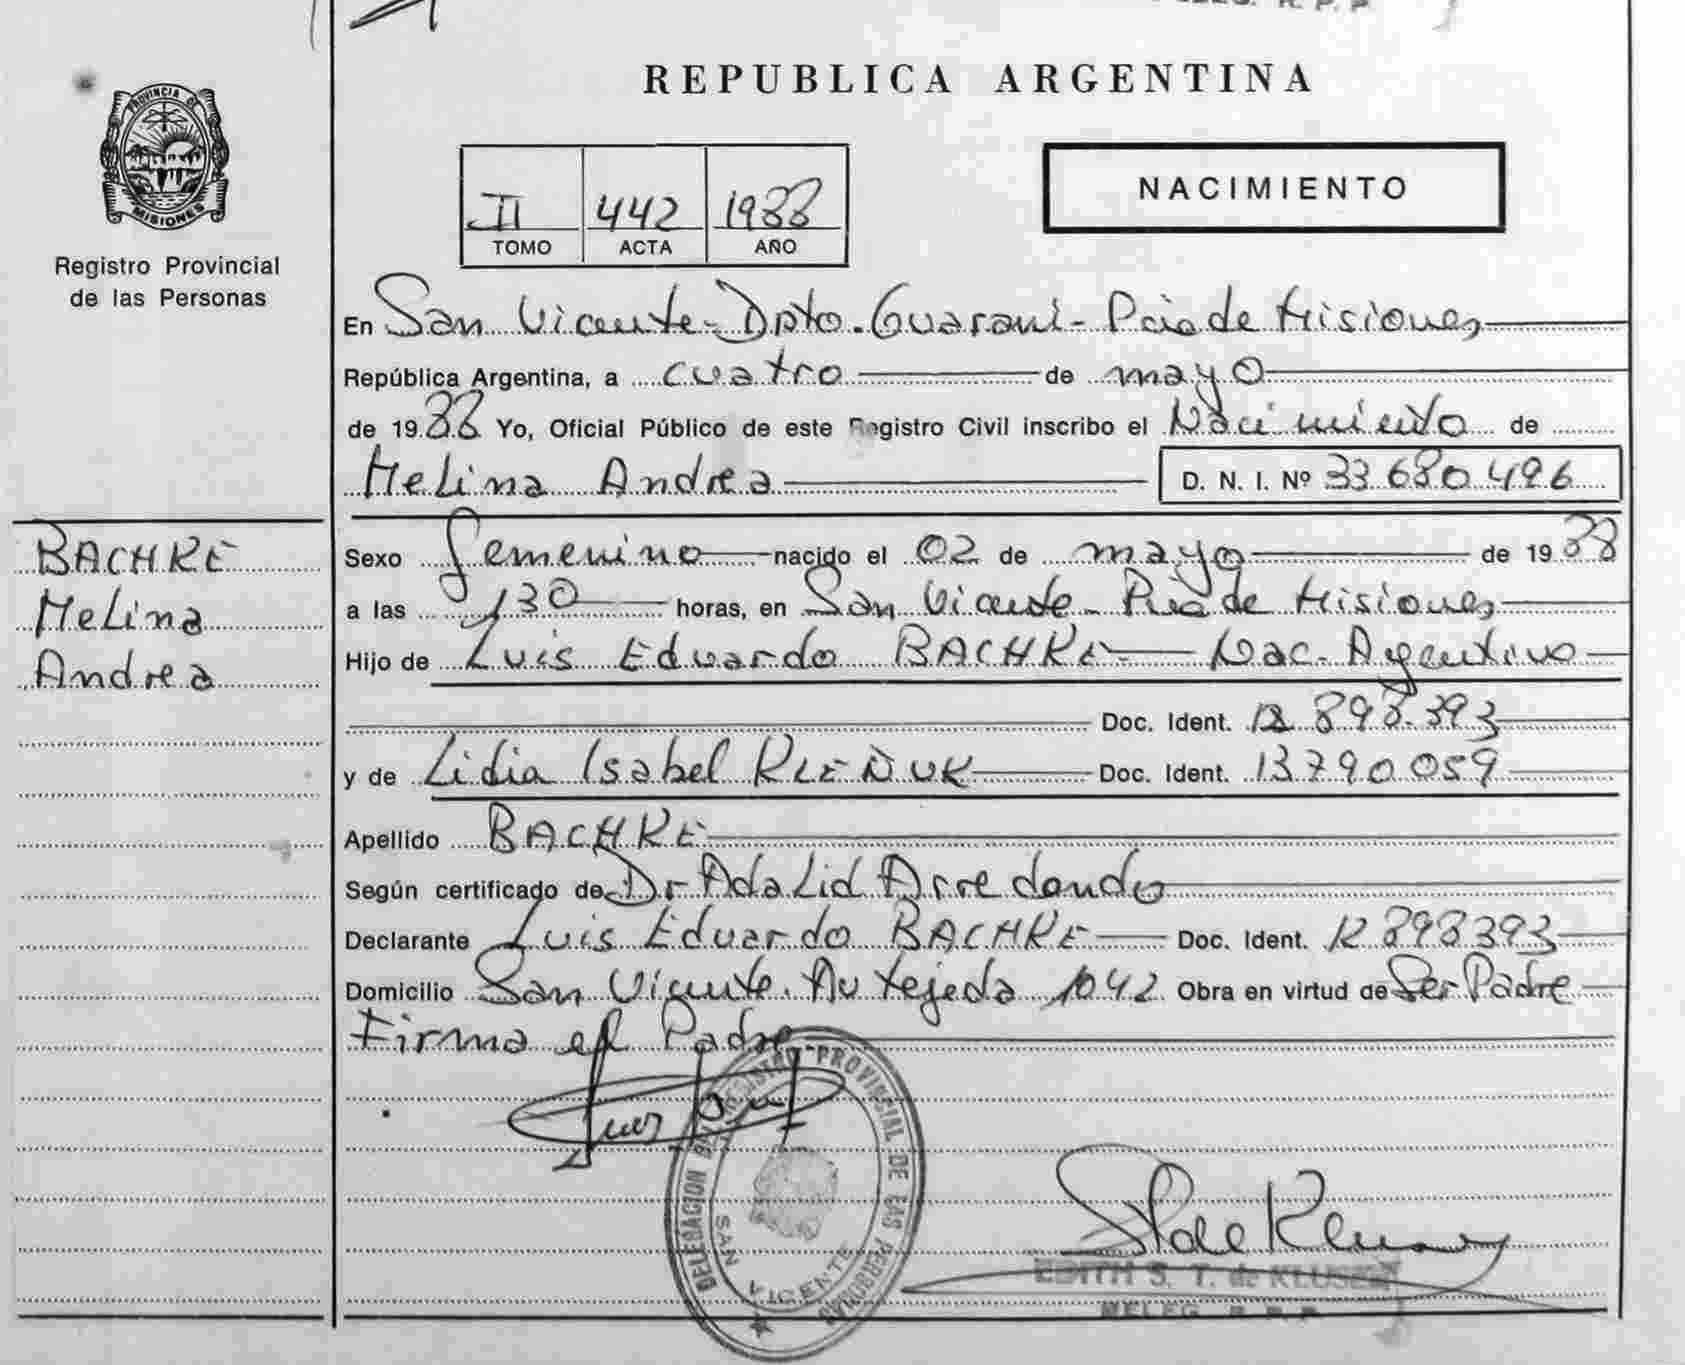 REPUBLICA ARGENTINA
PROVINCIA DE
MISIONES
Registro Provincial
de las Personas
II 442 1988
TOMO ACTA AÑO
NACIMIENTO
En San Vicente - Dpto. Guarani - Pcia de Misiones
República Argentina, a cuatro de mayo
de 1988 Yo, Oficial Público de este Registro Civil inscribo el Nacimiento de
Melina Andrea D. N. I. Nº 33680496
BACHKE
Melina
Andrea
Sexo Femenino nacido el 02 de mayo de 1988
a las 130 horas, en San Vicente - Pcia de Misiones
Hijo de Luis Eduardo BACHKE Nac. Argentino
Doc. Ident. 12.898.393
y de Lidia Isabel KLEÑUK Doc. Ident. 13790059
Apellido BACHKE
Según certificado de Dr Adalid Arredondo
Declarante Luis Eduardo BACHKE Doc. Ident. 12898393
Domicilio San Vicente. Av Tejeda 1042 Obra en virtud de Ser Padre
Firma el Padre
DELEGACION REGISTRO PROVINCIAL DE LAS PERSONAS
SAN VICENTE
EDITH S. T. de KLUSER
DELEG. R. P. P.